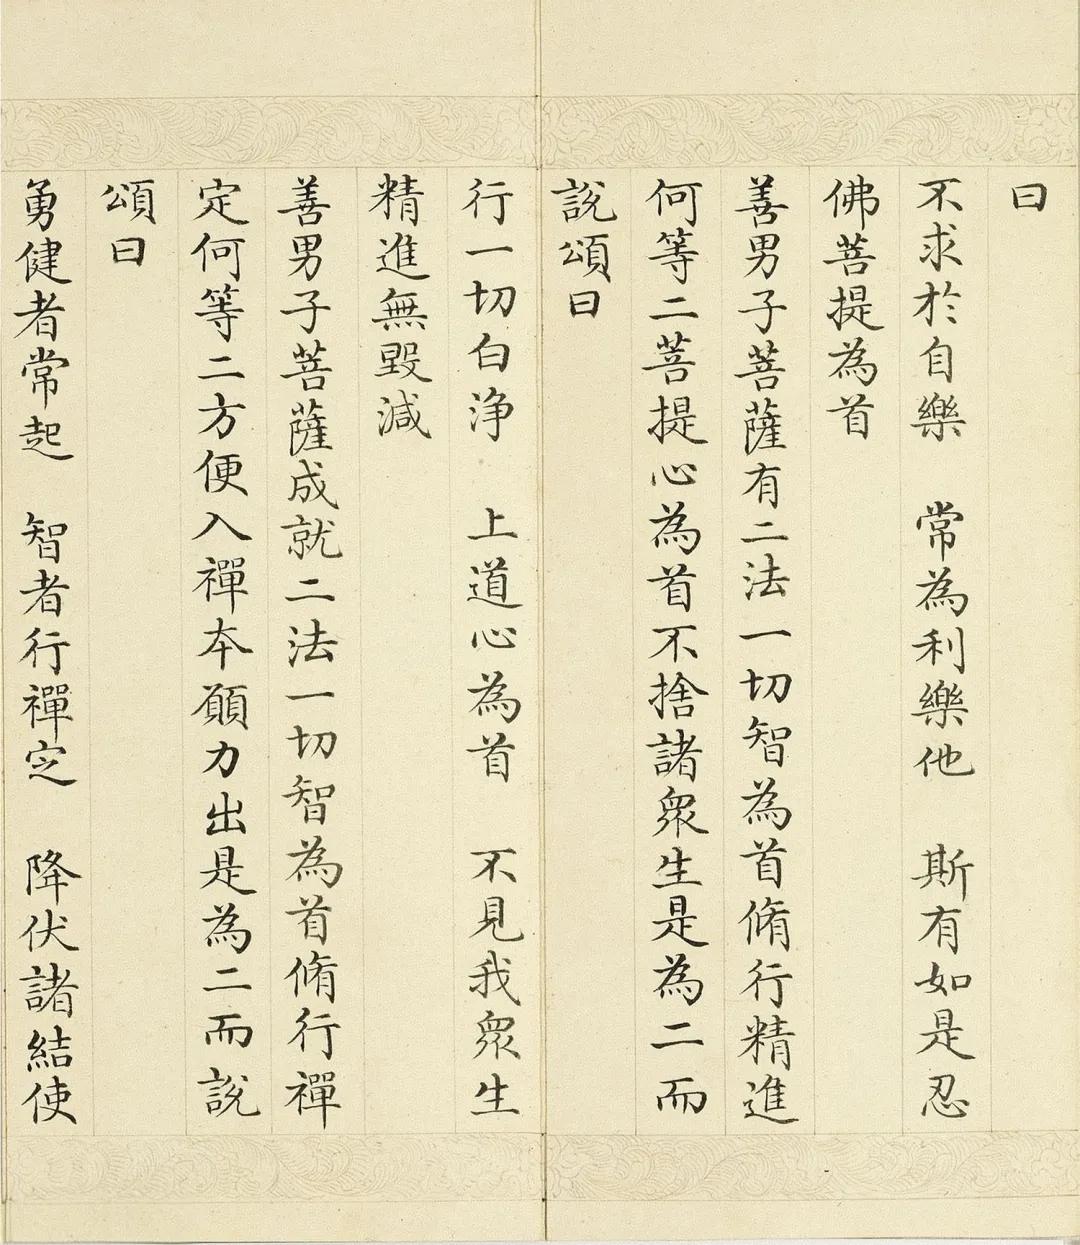 曰
不求於自樂　常為利樂他　斯有如是忍
佛菩提為首
善男子菩薩有二法一切智為首脩行精進
何等二菩提心為首不捨諸衆生是為二而
說頌曰
行一切白淨　上道心為首　不見我衆生
精進無毀減
善男子菩薩成就二法一切智為首脩行禪
定何等二方便入禪本願力出是為二而說
頌曰
勇健者常起　智者行禪定　降伏諸結使